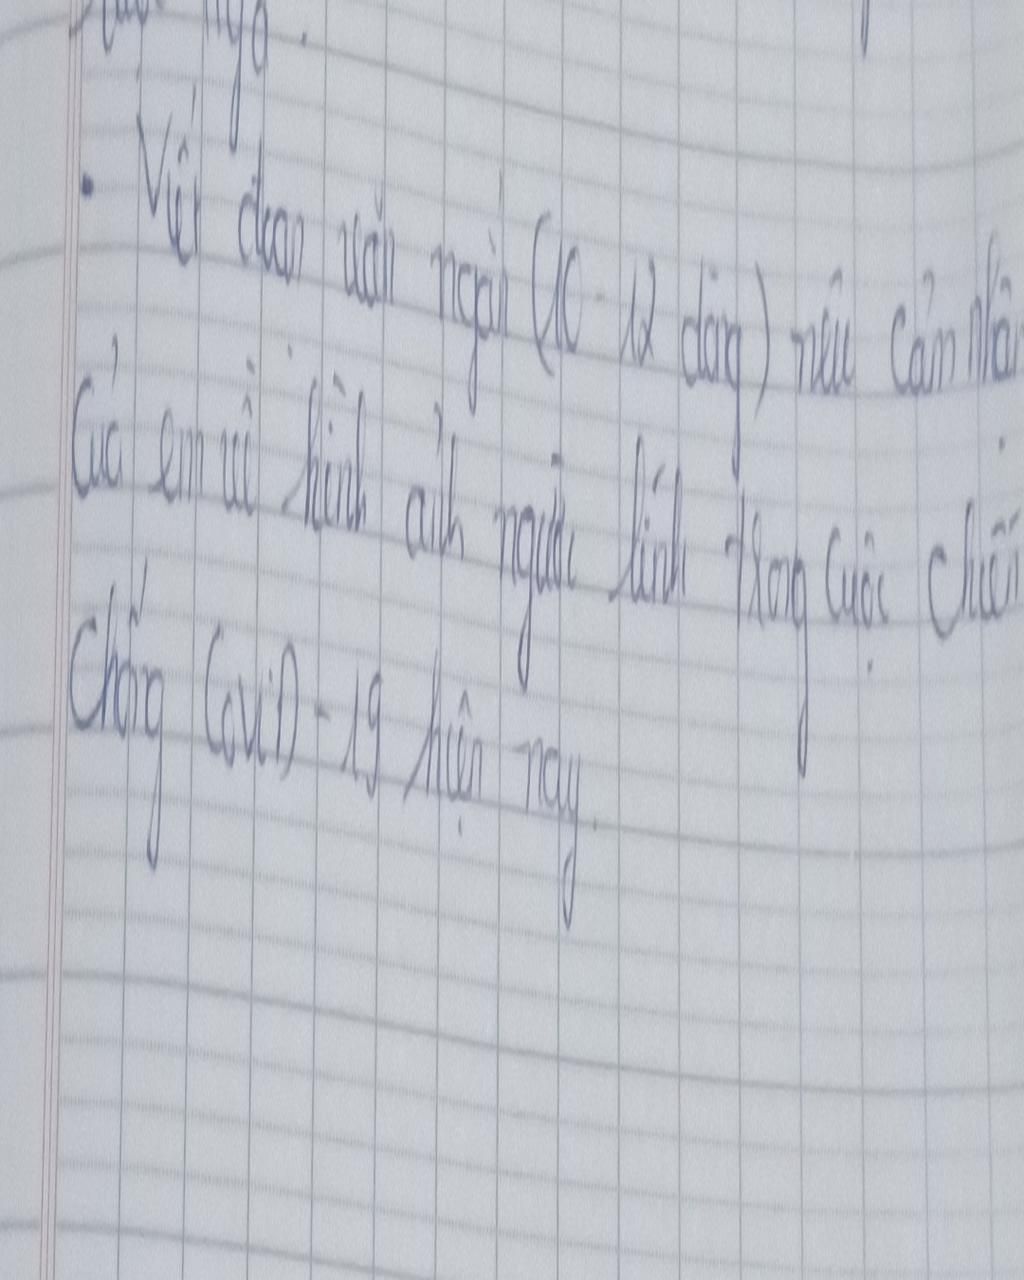 • Viết đoạn văn ngắn (10-12 dòng) nêu cảm
của em về hình ảnh người lính trong cuộc chiến
chống CoviD-19 hiện nay.